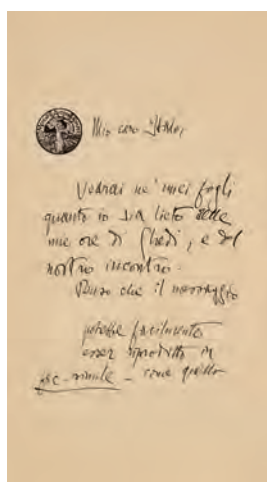 Mio caro
Vedrai ne' miei fogli
quanto io sia lieto delle
mie ore di Ghedi, e del
nostro incontro.
Penso che il messaggio
potesse facilmente
esser riprodotto in
fac-simile – come quello